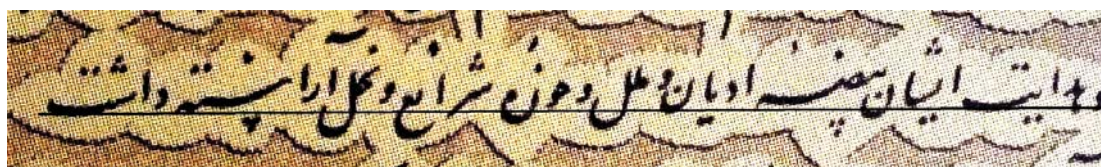 و هدایت ایشان بیضهٔ ادیان و ملل و حوزه شرایع و نحل آراسته داشت